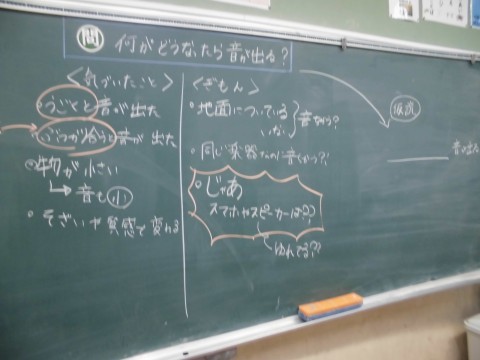 問 何がどうなったら音が出る?
<気づいたこと>
・うごくと音が出た
ぶつかり合うと音が出た
・物が小さい
→音も小
・そざいや質感で変わる
<ぎもん>
・地面についている
いない
音ちがう?
・同じ楽器なのに音ちがう??
・じゃあ
スマホやスピーカーは??
ゆれてる??
仮説
音が出る